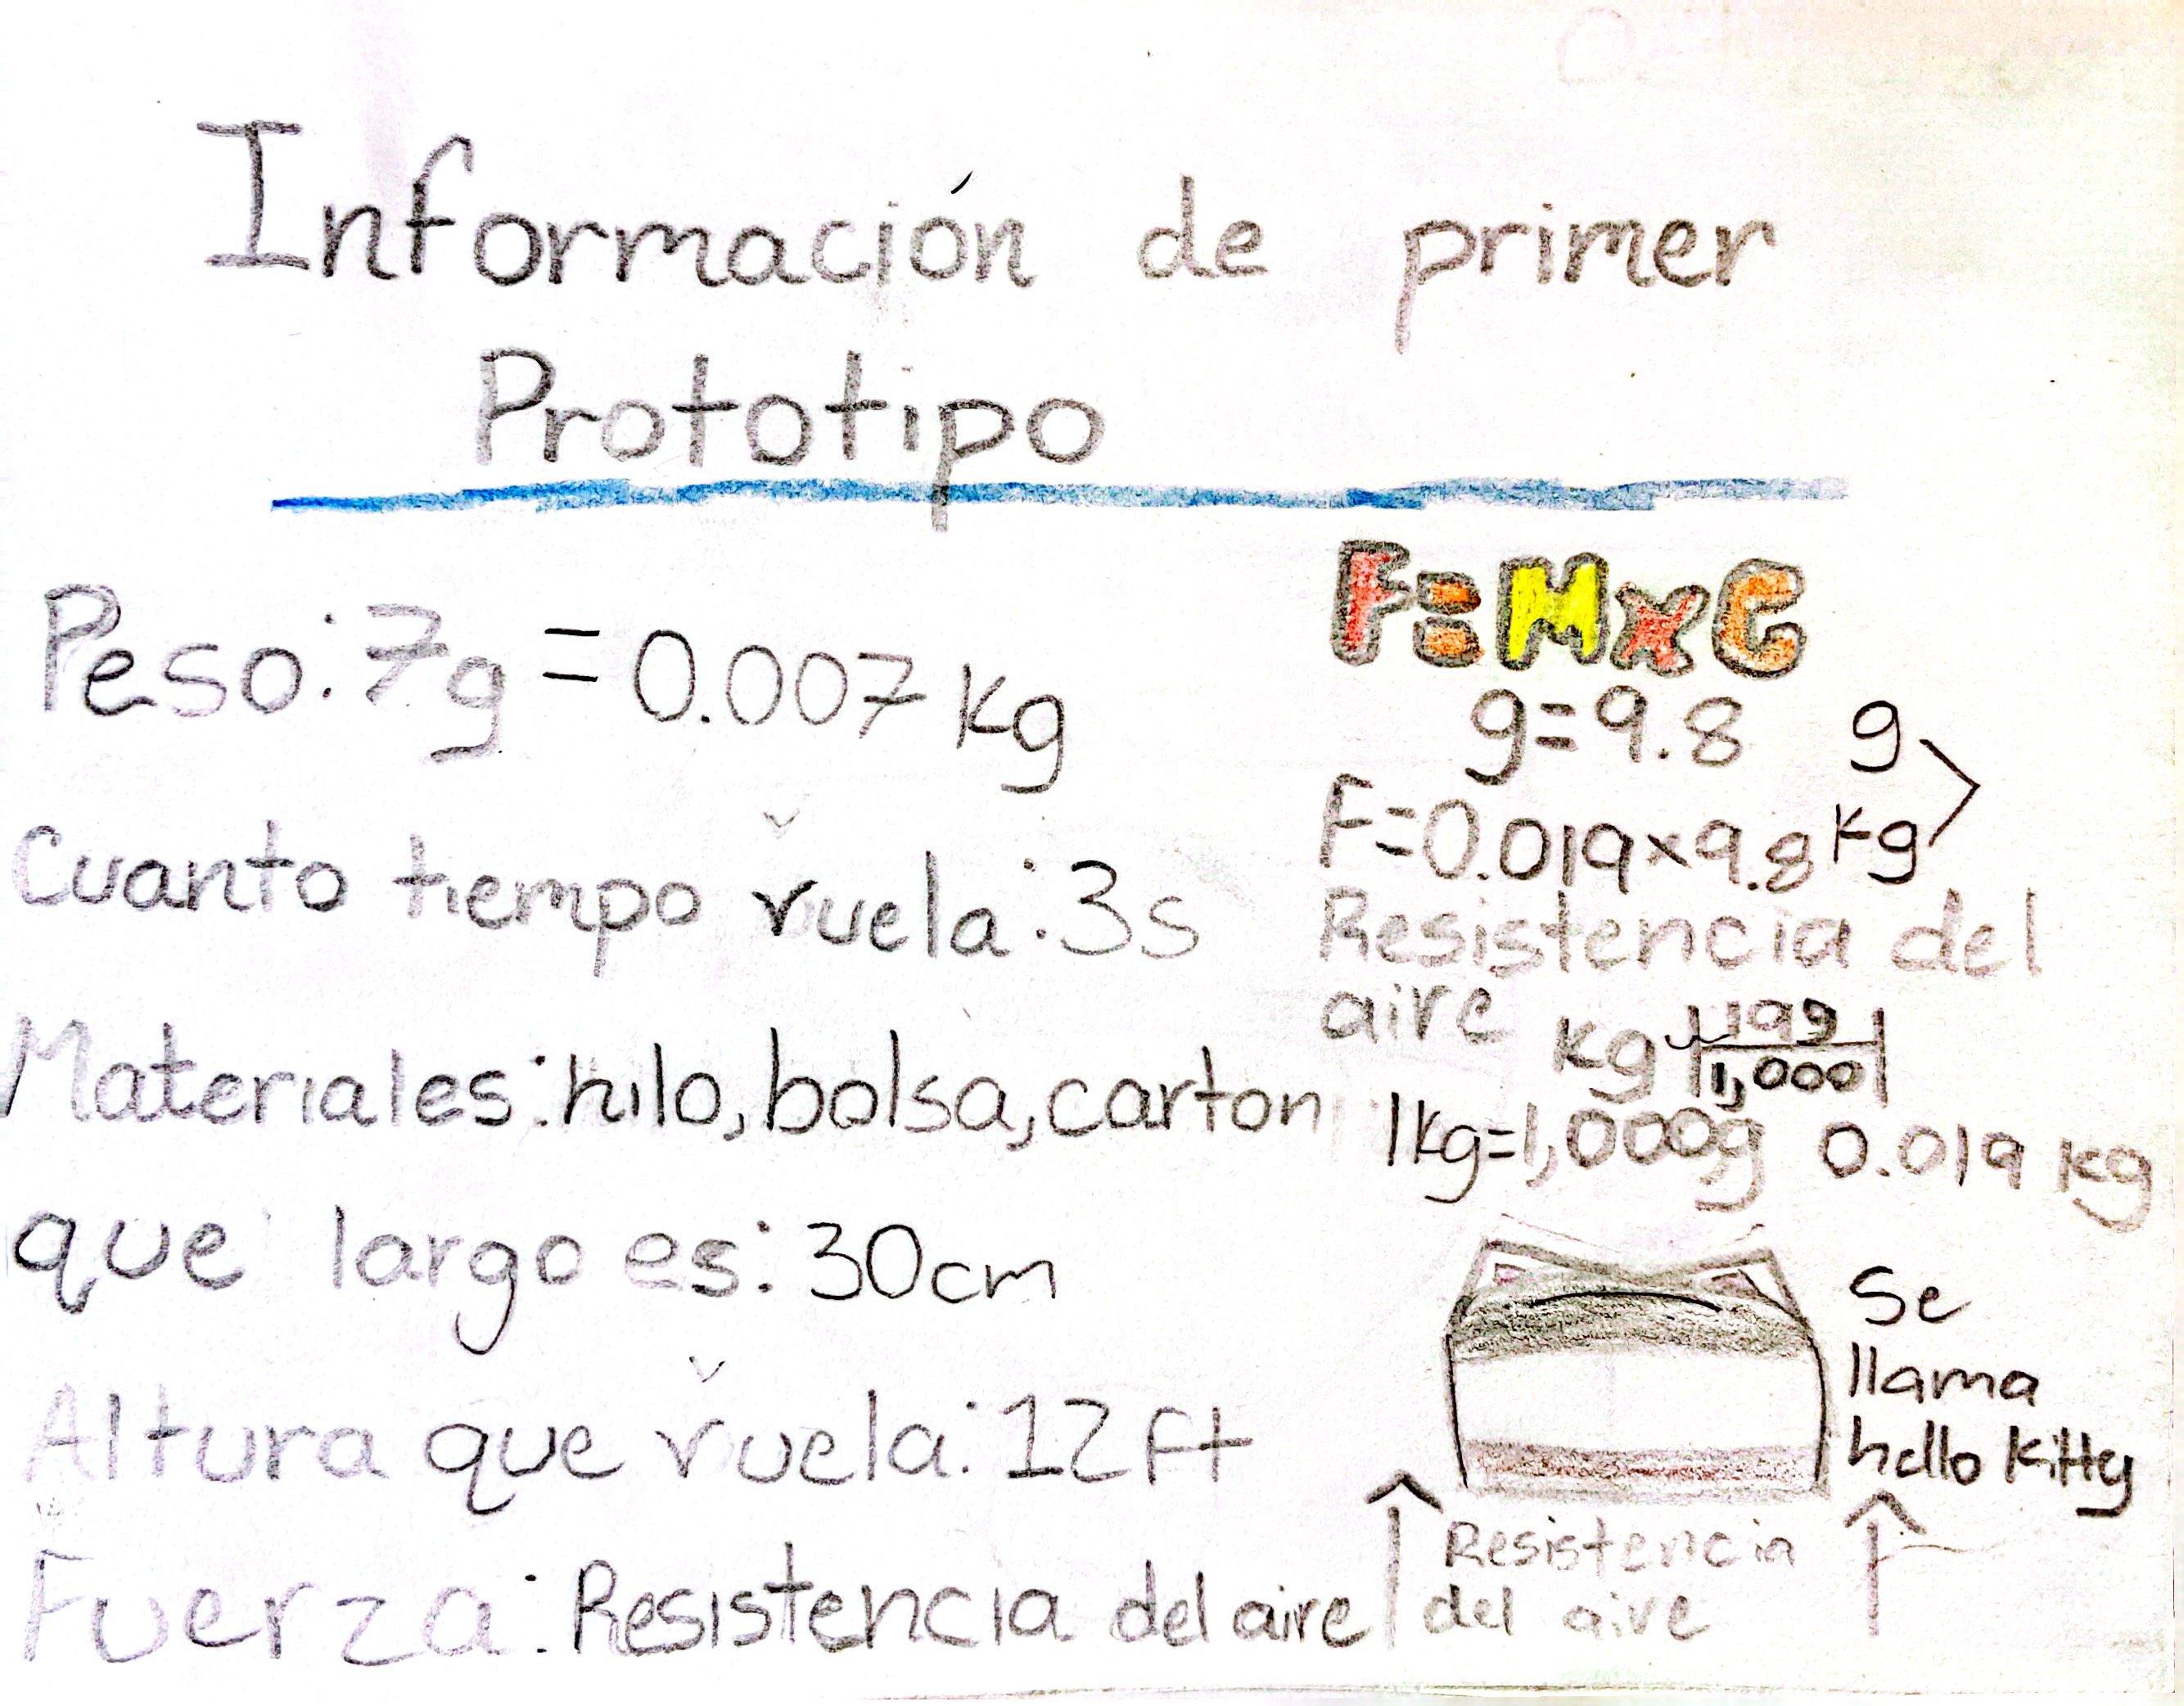 Información de primer
Prototipo
Peso: 7g = 0.007 kg
Cuanto tiempo vuela: 3s
Materiales: hilo, bolsa, carton
que largo es: 30cm
Altura que vuela: 12 ft
Fuerza: Resistencia del aire
F=MxG
g=9.8 g
F=0.019x9.8 kg
Resistencia del
aire
kg 19g
1,000
1kg=1,000g 0.019 kg
Se
llama
hello Kitty
Resistencia
del aire